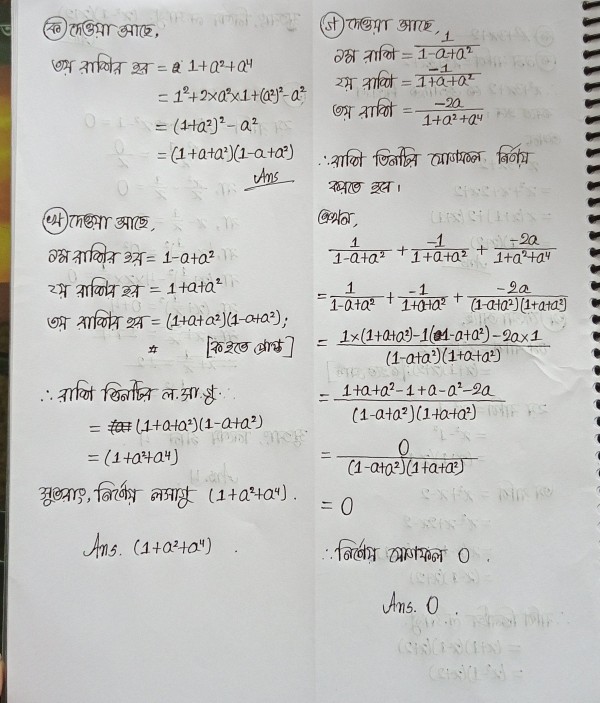 (ক) দেওয়া আছে,
৩য় রাশির হর = 1+a²+a⁴
= 1²+2×a²×1+(a²)²-a²
= (1+a²)²-a²
= (1+a+a²)(1-a+a²)
Ans
(খ) দেওয়া আছে,
১ম রাশির হর = 1-a+a²
২য় রাশির হর = 1+a+a²
৩য় রাশির হর = (1+a+a²)(1-a+a²);
[ক হতে প্রাপ্ত]
∴ রাশি তিনটির ল.সা.গু.
= (1+a+a²)(1-a+a²)
= (1+a²+a⁴)
সুতরাং, নির্ণেয় লসাগু (1+a²+a⁴).
Ans. (1+a²+a⁴)
(গ) দেওয়া আছে,
১ম রাশি = 1/(1-a+a²)
২য় রাশি = -1/(1+a+a²)
৩য় রাশি = -2a/(1+a²+a⁴)
∴ রাশি তিনটির যোগফল নির্ণয়
করতে হবে।
এখন,
1/(1-a+a²) + -1/(1+a+a²) + -2a/(1+a²+a⁴)
= 1/(1-a+a²) + -1/(1+a+a²) + -2a/(1-a+a²)(1+a+a²)
= 1×(1+a+a²)-1(1-a+a²)-2a×1/(1-a+a²)(1+a+a²)
= 1+a+a²-1+a-a²-2a/(1-a+a²)(1+a+a²)
= 0/(1-a+a²)(1+a+a²)
= 0
∴ নির্ণেয় যোগফল 0.
Ans. 0.